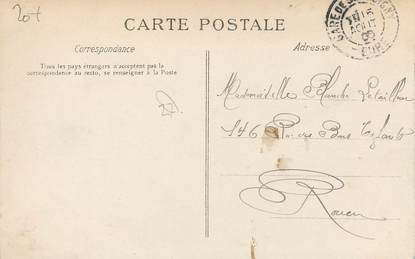 20f
CARTE POSTALE
Correspondance
Adresse
Tous les pays étrangers n'acceptent pas la
correspondance au recto, se renseigner à la Poste
GARE DE
AOUT
EURE
Mademoiselle Blanche
146 Rue
Rouen